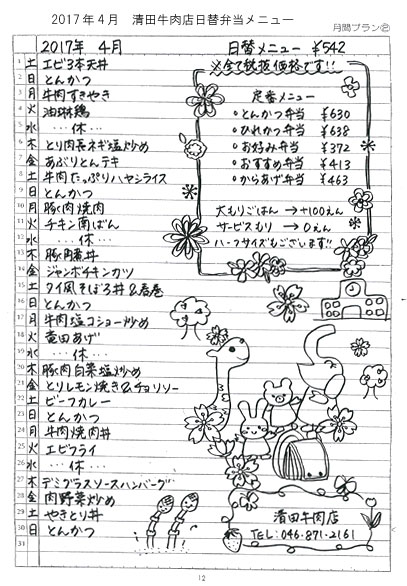 2017年4月 清田牛肉店日替弁当メニュー
月間プラン㉒
2017年 4月
日替メニュー ¥542
1 土 エビ3本天丼
2 日 とんかつ
3 月 牛肉すきやき
4 火 油琳鶏
5 水 …休…
6 木 とり肉長ネギ塩炒め
7 金 あぶりとんテキ
8 土 牛肉たっぷりハヤシライス
9 日 とんかつ
10 月 豚肉焼肉
11 火 チキン南ばん
12 水 …休…
13 木 豚角煮丼
14 金 ジャンボチキンカツ
15 土 タイ風そぼろ丼&春巻
16 日 とんかつ
17 月 牛肉塩コショー炒め
18 火 竜田あげ
19 水 …休…
20 木 豚肉白菜塩炒め
21 金 とりレモン焼き&チョリソー
22 土 ビーフカレー
23 日 とんかつ
24 月 牛肉焼肉丼
25 火 エビフライ
26 水 …休…
27 木 デミグラスソースハンバーグ
28 金 肉野菜炒め
29 土 やきとり丼
30 日 とんかつ
31
※全て税抜価格です!!
定番メニュー
○とんかつ弁当 ¥630
○ひれかつ弁当 ¥638
○お好み弁当 ¥372
○おすすめ弁当 ¥413
○からあげ弁当 ¥463
大もりごはん →+100えん
サービスもり → 0えん
ハーフサイズもございます!!
清田牛肉店
TEL:046-871-2161
12